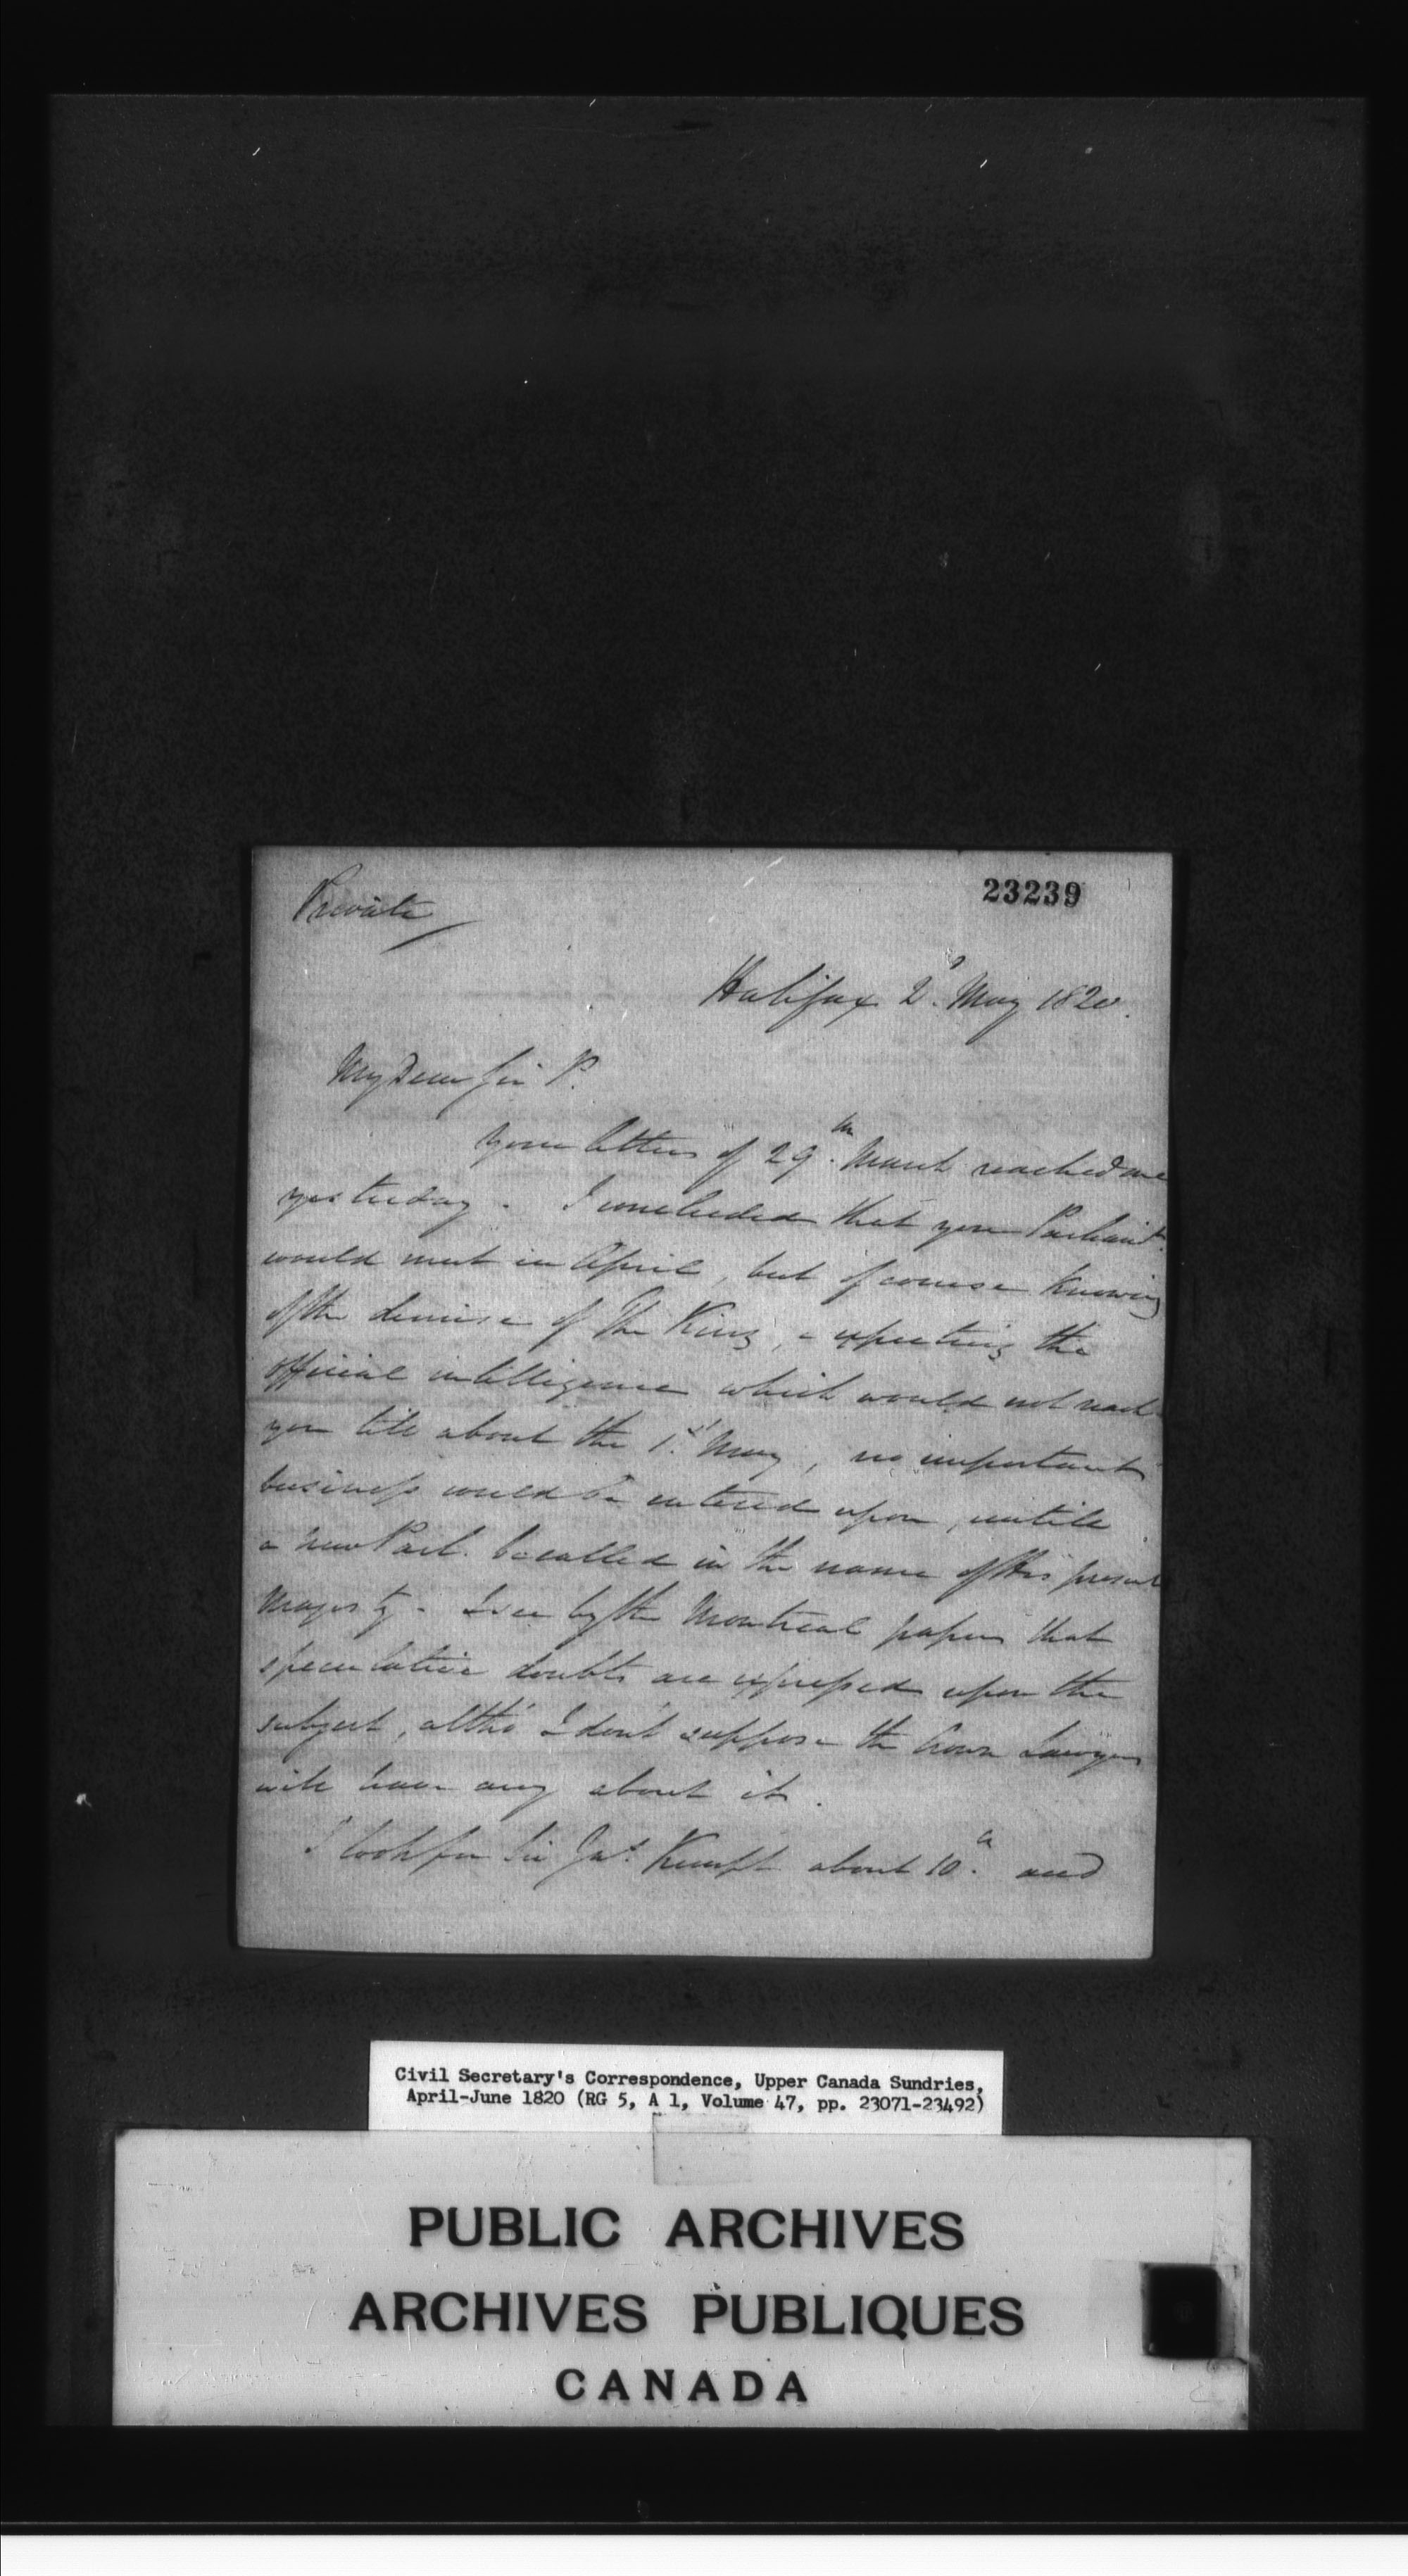 Private
23239
Halifax 2d. May 1820.
My Dear Sir P.
Your letter of 29th. March reached me
yesterday. I concluded that your Parliamt.
would meet in April, but of course knowing
of the demise of The King, & expecting the
official intelligence which would not reach
you till about the 1st. May, no important
business would be entered upon, untill
a new Parl. be called in the name of His present
Majesty. I see by the Montreal papers that
speculative doubts are expressed upon the
subject, altho' I don't suppose the Crown Lawyers
will have any about it.
I look for Sir Jas. Kempt about 10th. and
Civil Secretary's Correspondence, Upper Canada Sundries,
April-June 1820 (RG 5, A 1, Volume 47, pp. 23071-23492)
PUBLIC ARCHIVES
ARCHIVES PUBLIQUES
CANADA